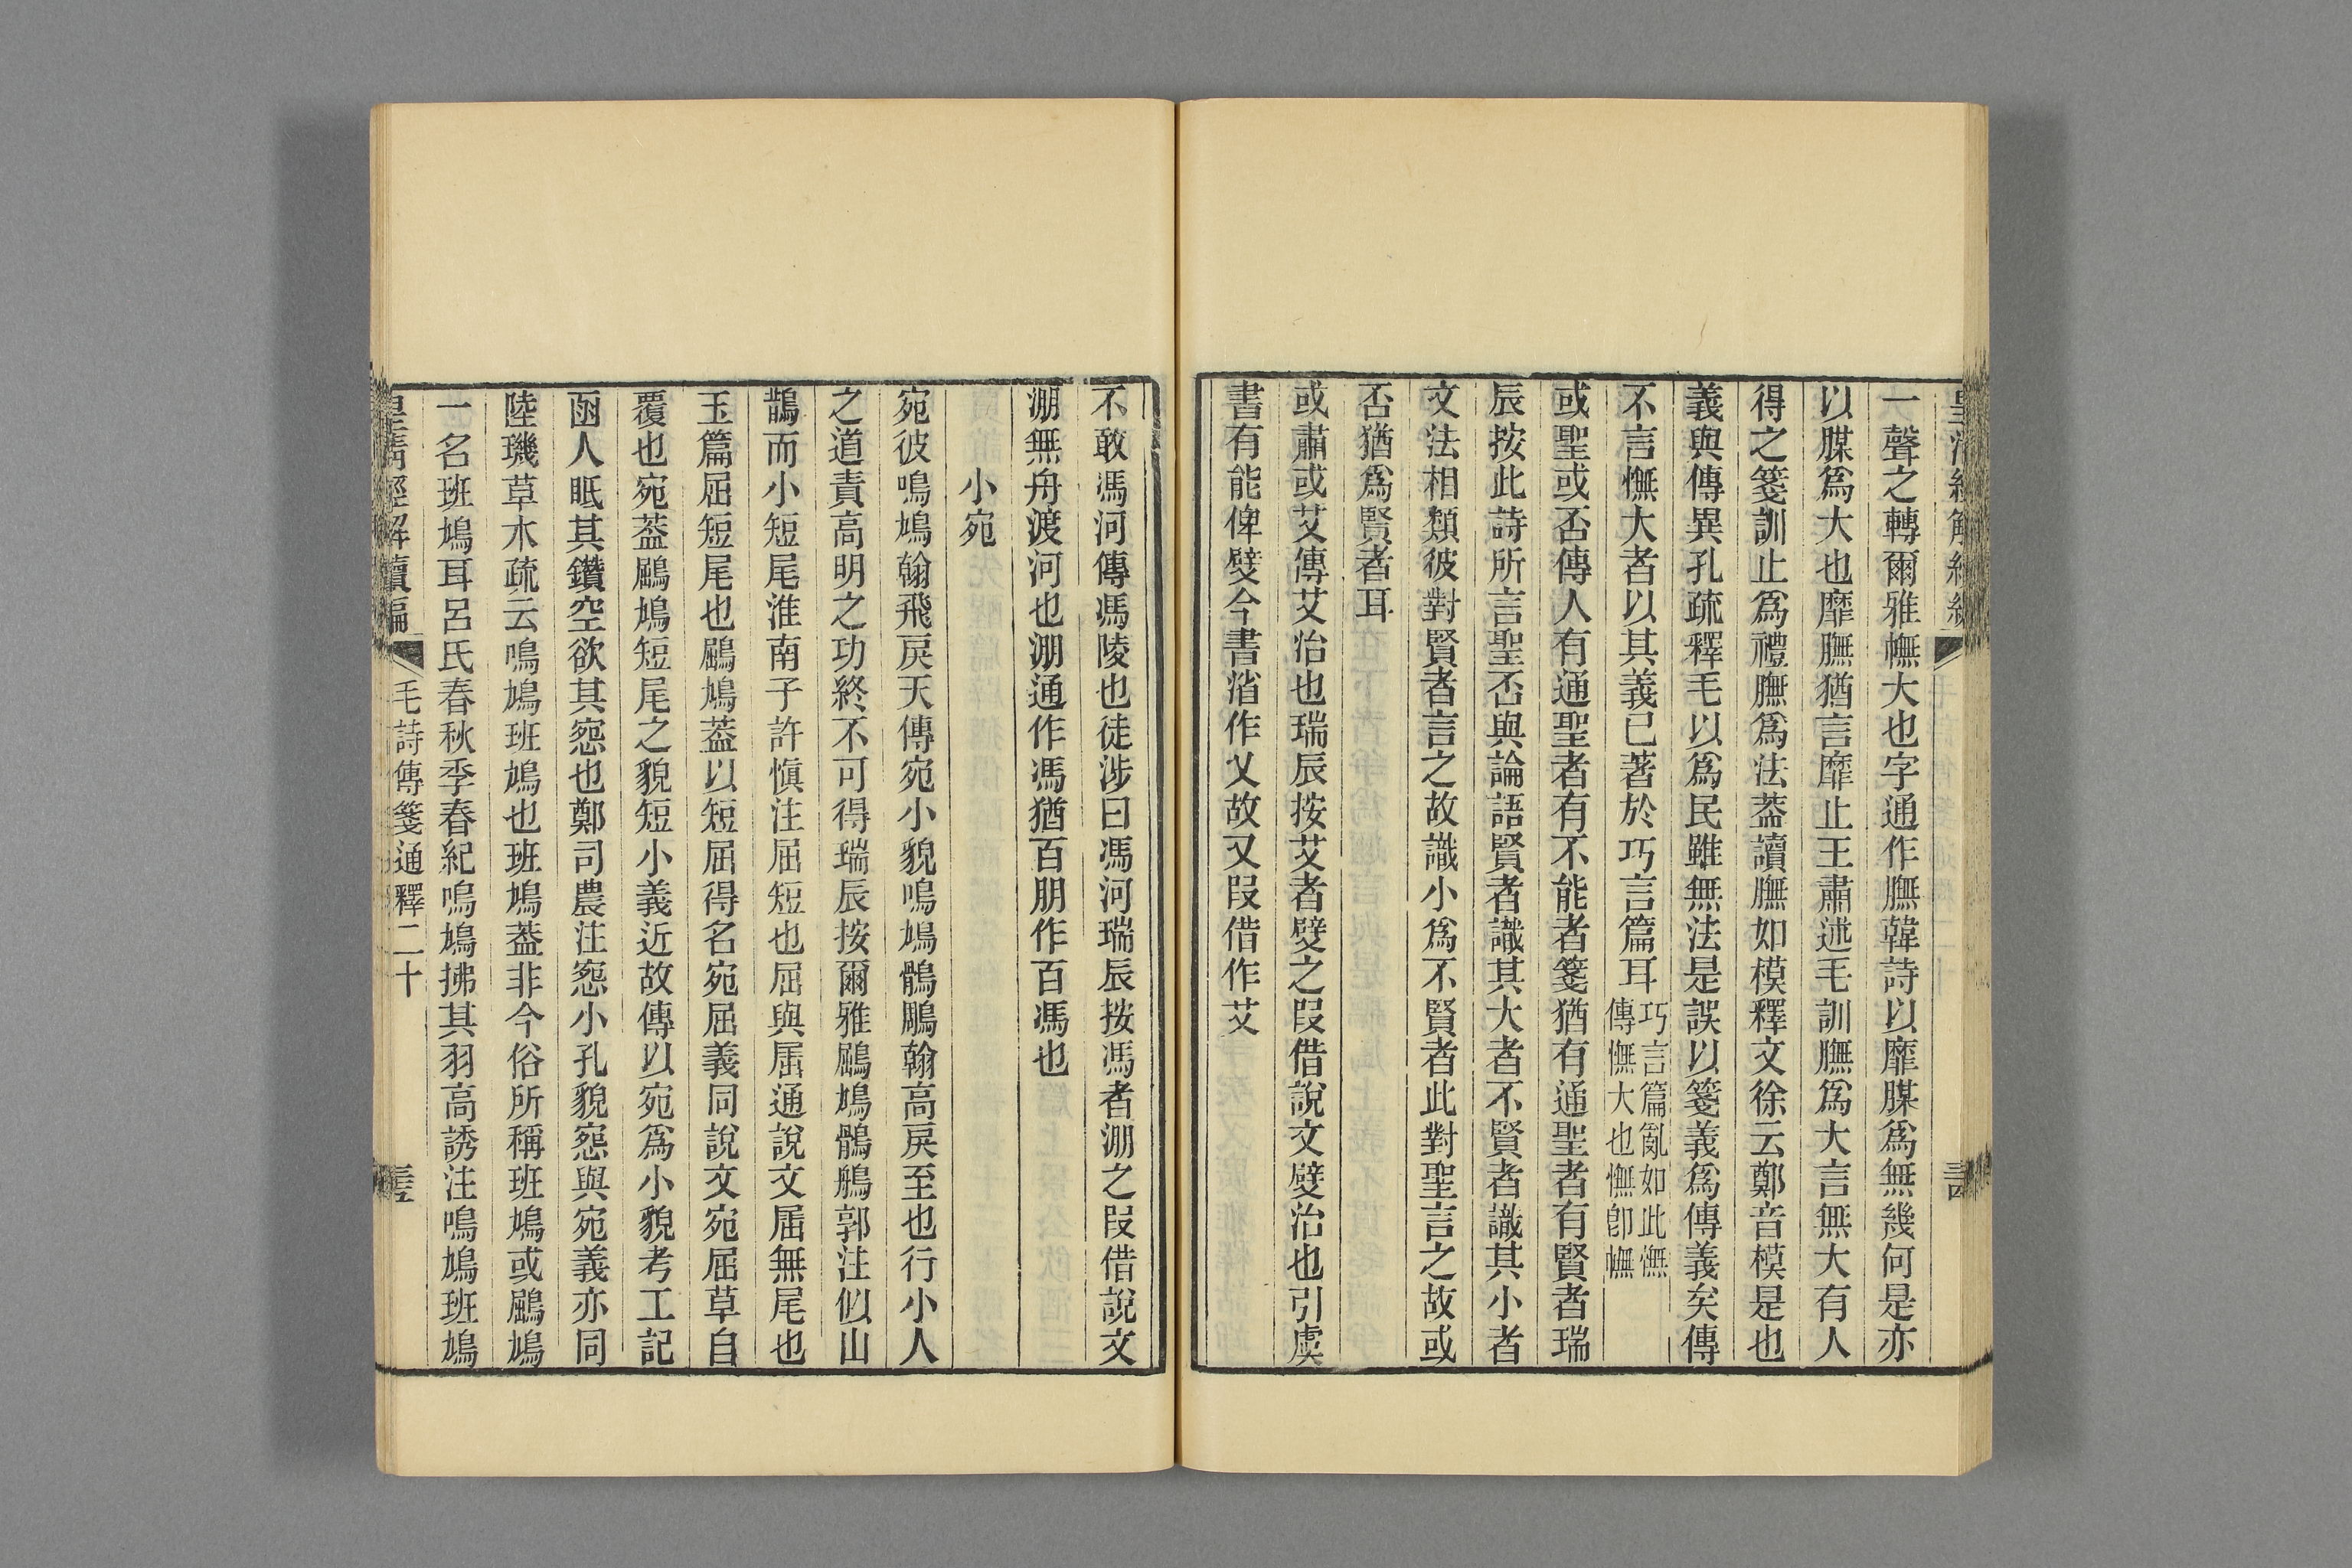 一聲之轉爾雅幠大也字通作膴韓詩以靡腜爲無幾何是亦
以腜爲大也靡膴猶言靡止王肅述毛訓膴爲大言無大有人
得之箋訓止爲禮膴爲法葢讀膴如模釋文徐云鄭音模是也
義與傳異孔疏釋毛以爲民雖無法是誤以箋義爲傳義矣傳
不言憮大者以其義已著於巧言篇耳巧言篇亂如此憮傳憮大也憮卽幠
或聖或否傳人有通聖者有不能者箋猶有通聖者有賢者瑞
辰按此詩所言聖否與論語賢者識其大者不賢者識其小者
文法相類彼對賢者言之故識小爲不賢者此對聖言之故或
否猶爲賢者耳
或肅或艾傳艾治也瑞辰按艾者嬖之叚借說文嬖治也引虞
書有能俾嬖今書渻作乂故又叚借作艾
不敢馮河傳馮陵也徒涉曰馮河瑞辰按馮者淜之叚借說文
淜無舟渡河也淜通作馮猶百朋作百馮也
小宛
宛彼鳴鳩翰飛戾天傳宛小貌鳴鳩鶻鵰翰高戾至也行小人
之道責高明之功終不可得瑞辰按爾雅鶌鳩鶻鵃郭注似山
鵲而小短尾淮南子許愼注屈短也屈與屈通說文屈無尾也
玉篇屈短尾也鶌鳩葢以短屈得名宛屈義同說文宛屈草自
覆也宛葢鶌鳩短尾之貌短小義近故傳以宛爲小貌考工記
函人眡其鑽空欲其惌也鄭司農注惌小孔貌惌與宛義亦同
陸璣草木疏云鳴鳩班鳩也班鳩葢非今俗所稱班鳩或鶌鳩
一名班鳩耳呂氏春秋季春紀鳴鳩拂其羽高誘注鳴鳩班鳩
皇淸經解續編 毛詩傳箋通釋二十